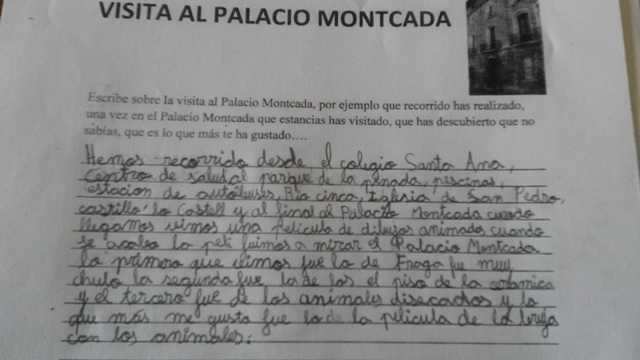 VISITA AL PALACIO MONTCADA
Escribe sobre la visita al Palacio Montcada, por ejemplo que recorrido has realizado,
una vez en el Palacio Montcada que estancias has visitado, que has descubierto que no
sabías, que es lo que más te ha gustado….
Hemos recorrido desde el colegio Santa Ana,
centro de salud al parque de la penada, piscinas,
estacion de autobuses, Rio cinca, Iglesia de San Pedro,
castillo lo Castell y al final al Palacio Montcada cuando
llegamos vimos una pelicula de dibujos animados cuando
se acabo la peli fuimos a mirar el Palacio Montcada
la primera que vimos fue la de Fraga fue muy
chula la segunda fue la de las el piso de la ceramica
y el tercero fue de los animales disecados y lo
que más me gusto fue lo de la pelicula de la bruja
con los animales.